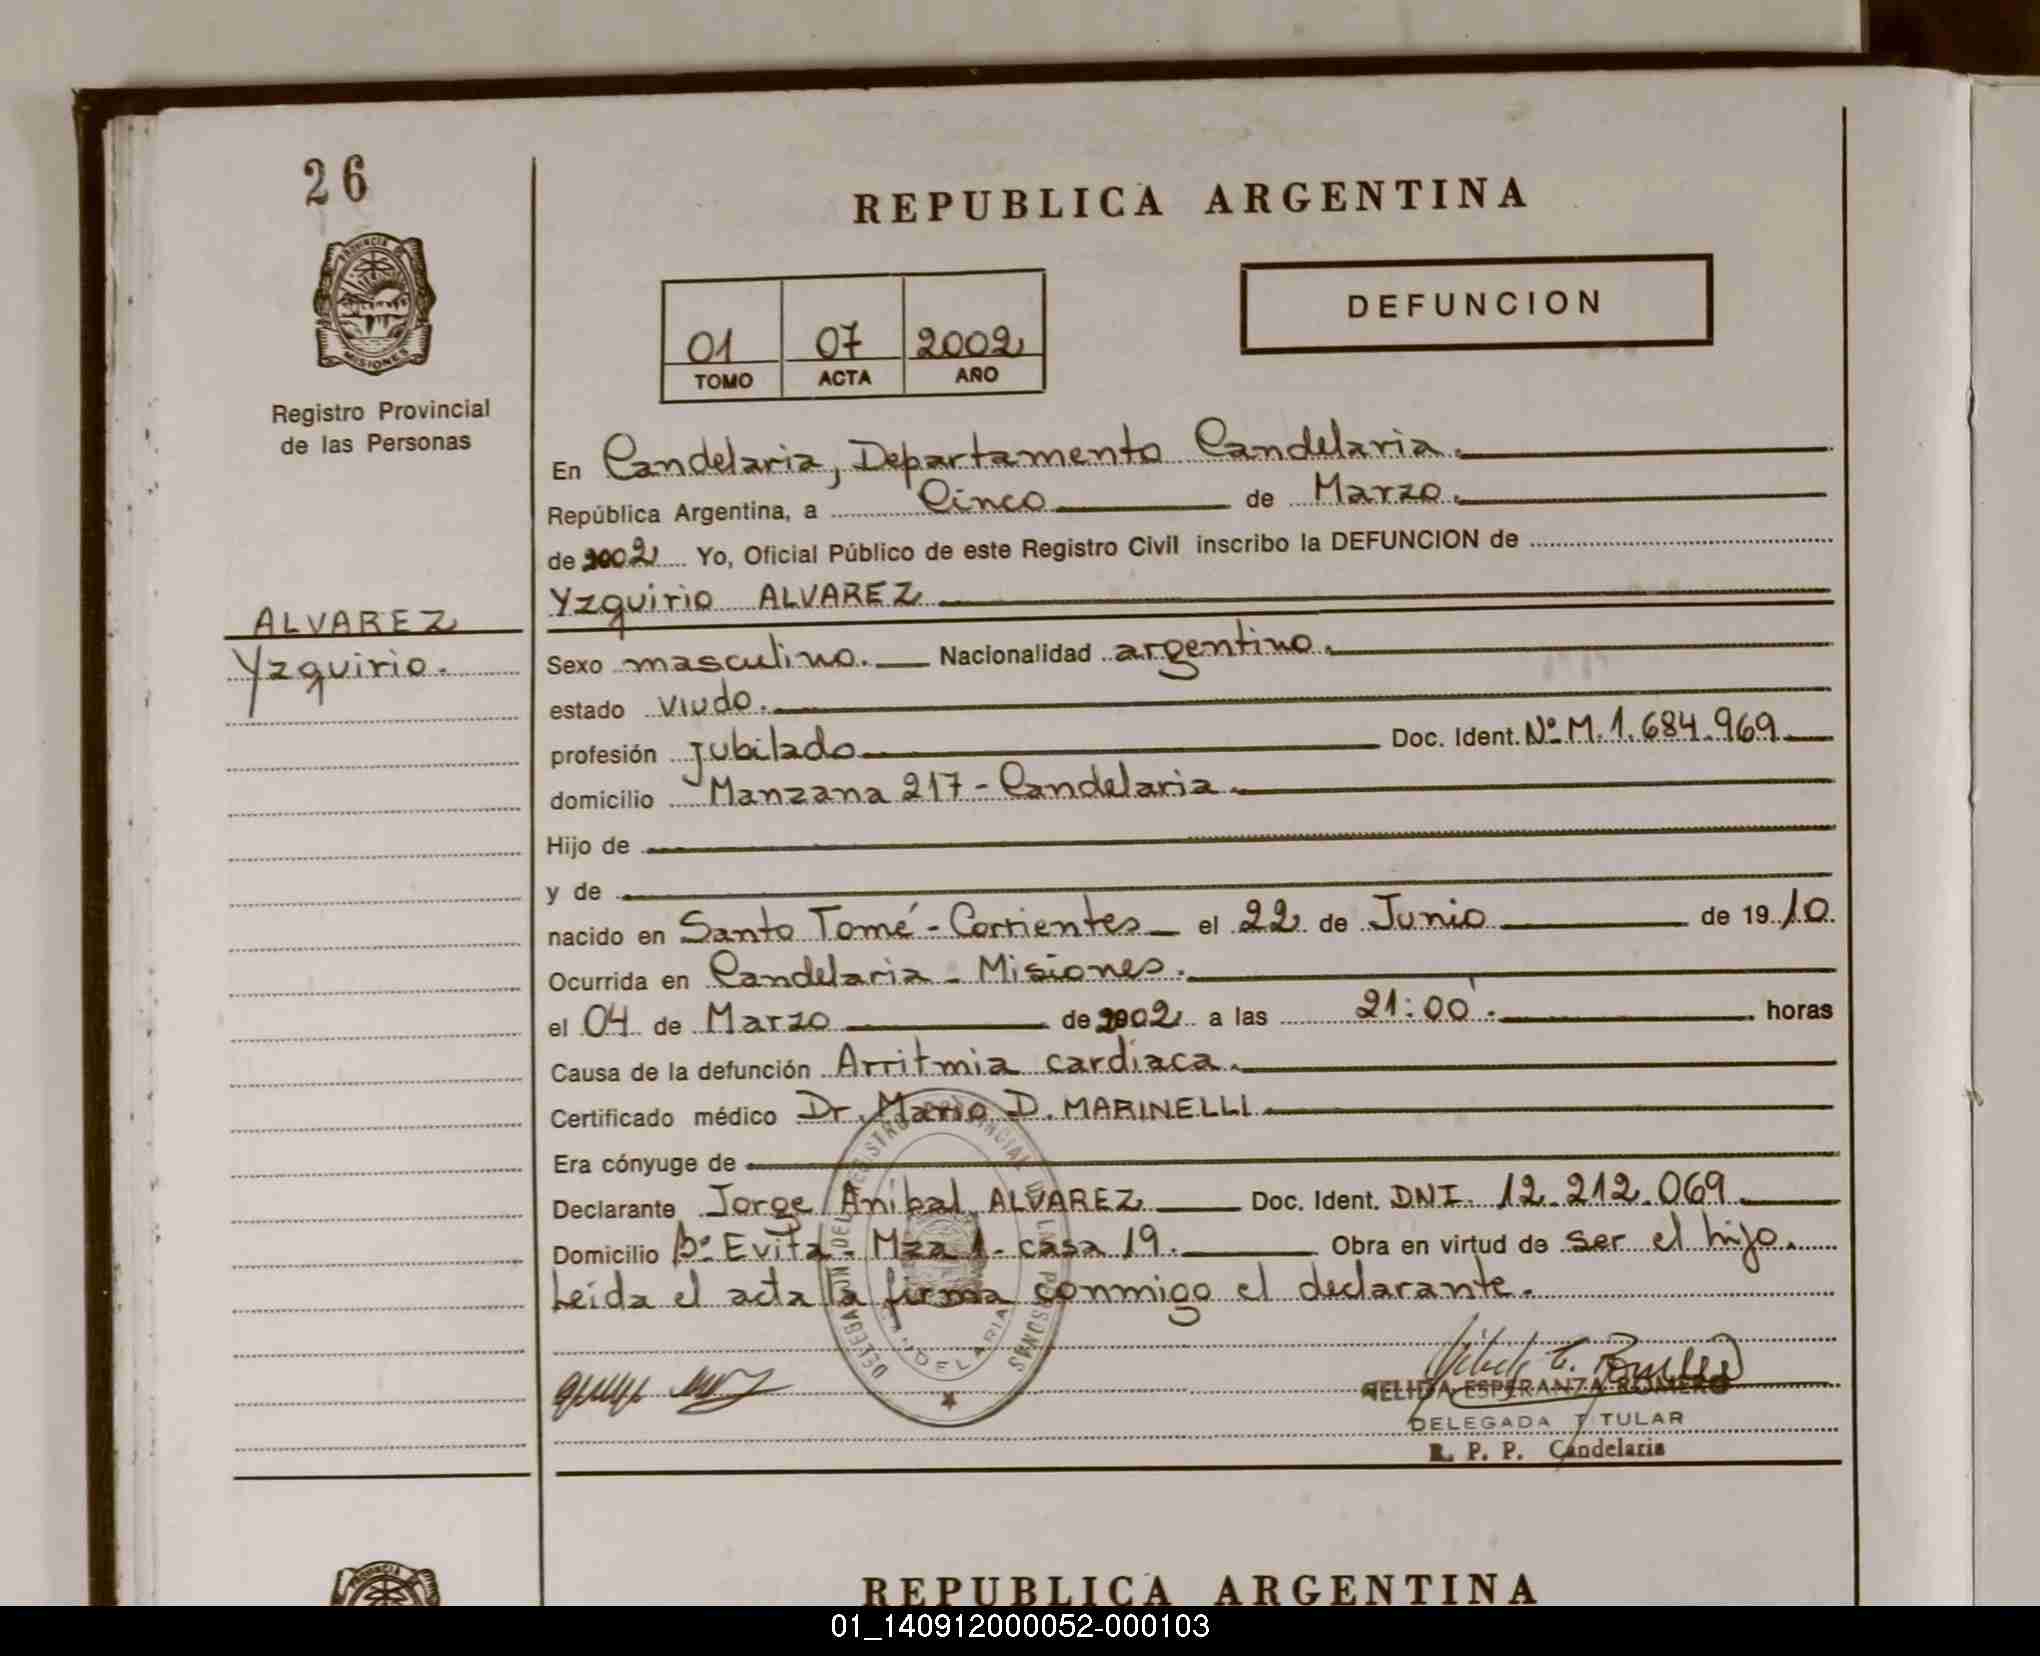 26
REPUBLICA ARGENTINA
PROVINCIA DE
MISIONES
Registro Provincial
de las Personas
01 07 2002
TOMO ACTA AÑO
DEFUNCION
ALVAREZ
Yzquirio.
En Candelaria, Departamento Candelaria.
República Argentina, a Cinco de Marzo.
de 2002 Yo, Oficial Público de este Registro Civil inscribo la DEFUNCION de
Yzquirio ALVAREZ
Sexo masculino. Nacionalidad argentino.
estado viudo.
profesión jubilado Doc. Ident. Nº M. 1.684.969
domicilio Manzana 217 - Candelaria.
Hijo de
y de
nacido en Santo Tomé - Corrientes el 22 de Junio de 1910.
Ocurrida en Candelaria - Misiones.
el 04 de Marzo de 2002 a las 21:00'. horas
Causa de la defunción Arritmia cardíaca.
Certificado médico Dr. Mario D. MARINELLI
Era cónyuge de
Declarante Jorge Anibal ALVAREZ Doc. Ident. DNI. 12.212.069
Domicilio Bº Evita - Mza 1 - casa 19. Obra en virtud de ser el hijo.
Leída el acta la firma conmigo el declarante.
DELEGACION DEL REGISTRO PROVINCIAL DE LAS PERSONAS
CANDELARIA
NELIDA ESPERANZA ROMERO
DELEGADA TITULAR
R. P. P. Candelaria
REPUBLICA ARGENTINA
01_140912000052-000103